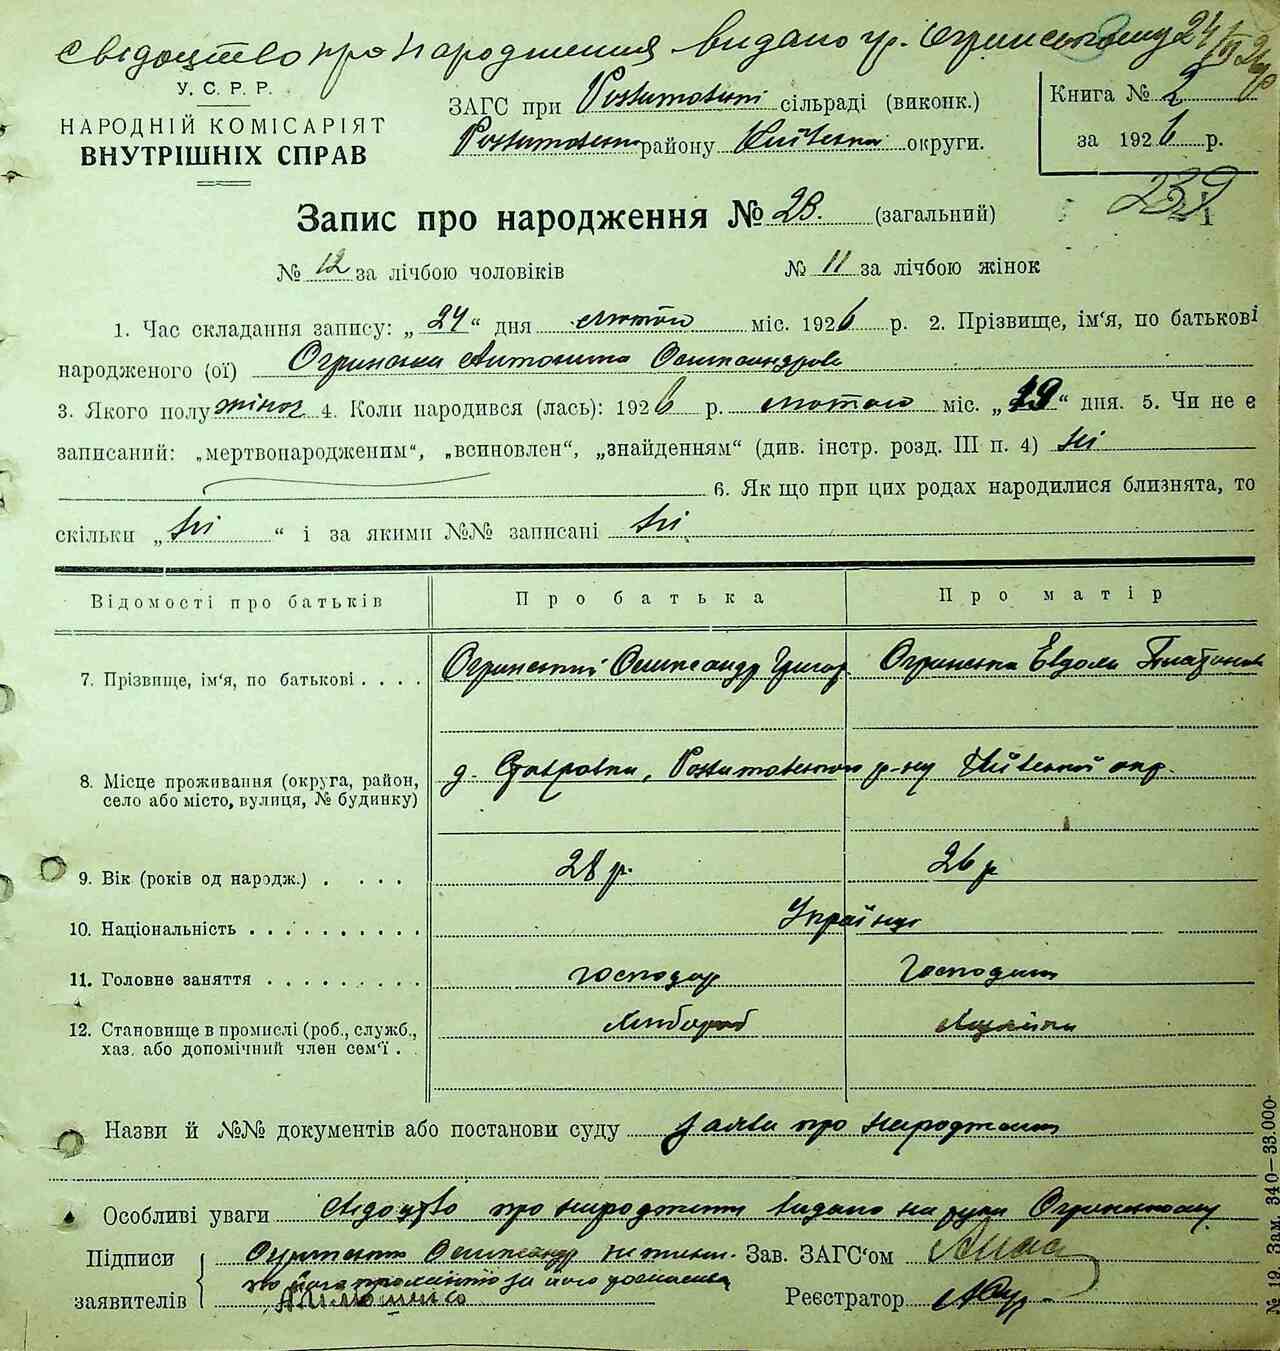 свідоцтво про народження видано гр. Огринському 24/II 26 р
У. С. Р. Р.
НАРОДНІЙ КОМІСАРІЯТ
ВНУТРІШНІХ СПРАВ
ЗАГС при сільраді (виконк.)
району Київська округи.
Книга № 2
за 1926 р.
239
Запис про народження № 23. (загальний)
№ 12 за лічбою чоловіків № 11 за лічбою жінок
1. Час складання запису: „ 24 “ дня лютого міс. 1926 р. 2. Прізвище, ім‘я, по батькові
народженого (ої) Огринська Антонина Олександрова
3. Якого полу жіноч 4. Коли народився (лась): 1926 р. лютого міс. „ 19 “ дня. 5. Чи не є
записаний: „мертвонародженим“, „всиновлен“, „знайденням“ (див. інстр. розд. III п. 4) ні
6. Як що при цих родах народилися близнята, то
скільки „ ні “ і за якими №№ записані ні
Відомості про батьків Про батька Про матір
7. Прізвище, ім‘я, по батькові . . . . Огринський Олександр Григор. Огринська Евдоки Платонов
8. Місце проживання (округа, район,
село або місто, вулиця, № будинку) р-ну Київської окр.
9. Вік (років од народж.) . . . . 28 р. 26 р
10. Національність . . . . . . . . . . Українці
11. Головне заняття . . . . . . . . . господар Господиня
12. Становище в промислі (роб., служб.,
хаз. або допомічний член сем‘ї . . Хлібороб
Назви й №№ документів або постанови суду заява про народження
Особливі уваги Свідоцтво про народження видано на руки Огринському
Підписи Олександр Зав. ЗАГС‘ом
по його проханню за його
заявителів Реєстратор
№ 19. Зам. 340—33.000